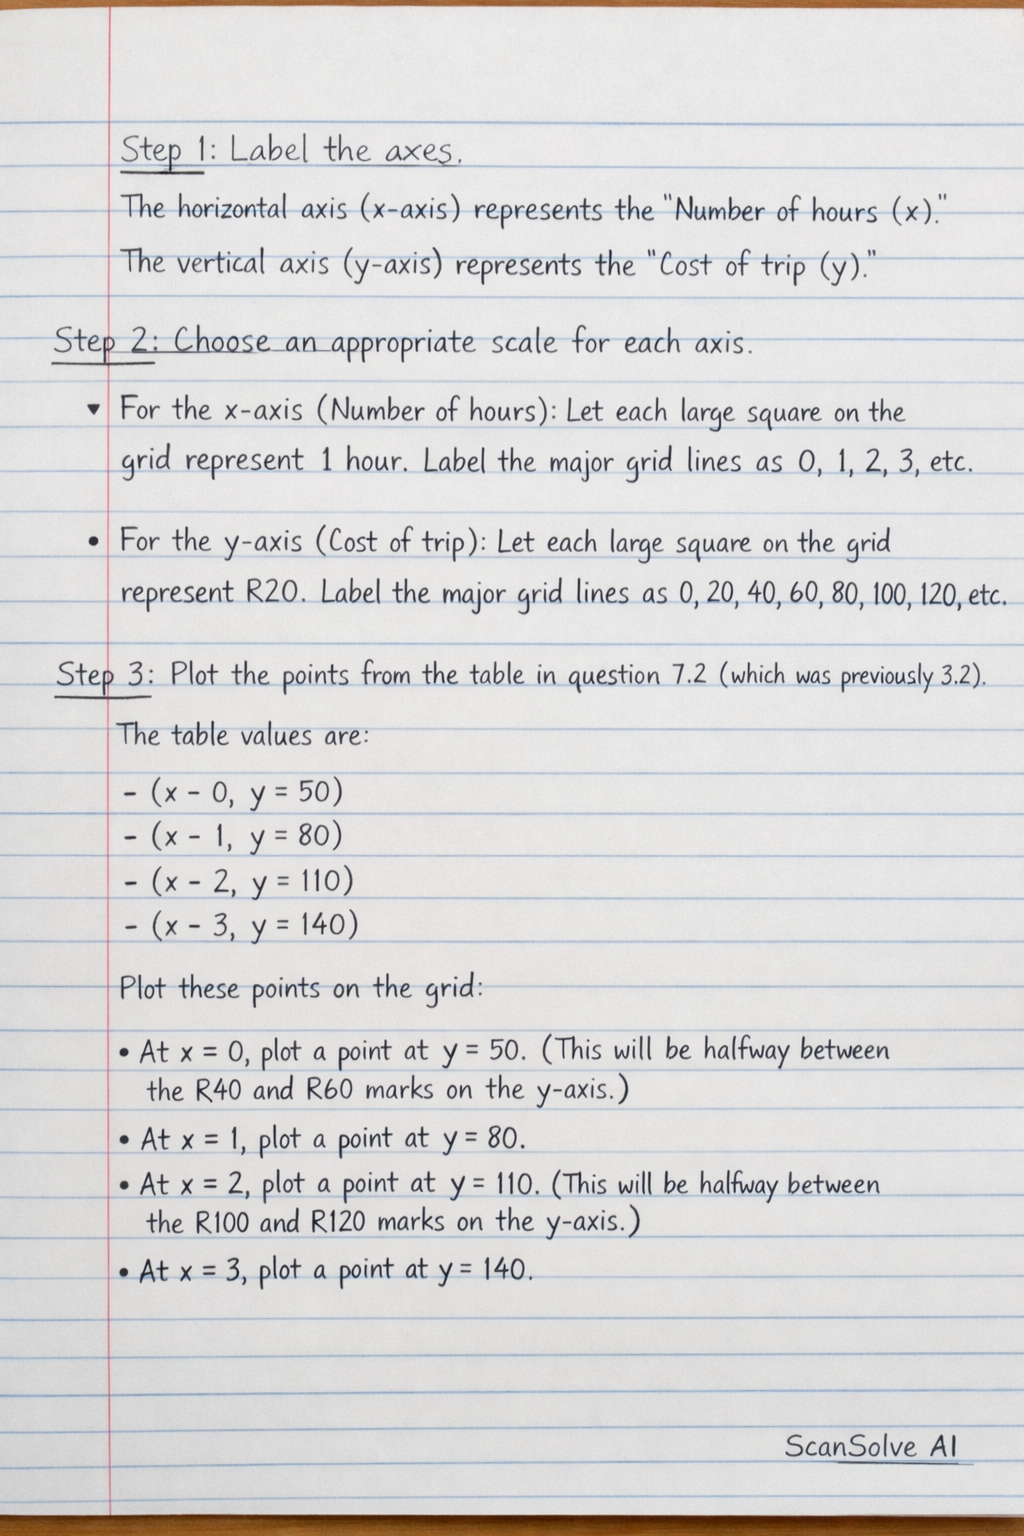 Step 1: Label the axes.
The horizontal axis (x-axis) represents the "Number of hours (x)."
The vertical axis (y-axis) represents the "Cost of trip (y)."
Step 2: Choose an appropriate scale for each axis.
▾ For the x-axis (Number of hours): Let each large square on the
grid represent 1 hour. Label the major grid lines as 0, 1, 2, 3, etc.
• For the y-axis (Cost of trip): Let each large square on the grid
represent R20. Label the major grid lines as 0, 20, 40, 60, 80, 100, 120, etc.
Step 3: Plot the points from the table in question 7.2 (which was previously 3.2).
The table values are:
- (x - 0, y = 50)
- (x - 1, y = 80)
- (x - 2, y = 110)
- (x - 3, y = 140)
Plot these points on the grid:
• At x = 0, plot a point at y = 50. (This will be halfway between
the R40 and R60 marks on the y-axis.)
• At x = 1, plot a point at y = 80.
• At x = 2, plot a point at y = 110. (This will be halfway between
the R100 and R120 marks on the y-axis.)
• At x = 3, plot a point at y = 140.
ScanSolve AI